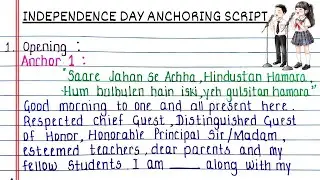 INDEPENDENCE DAY ANCHORING SCRIPT
1. Opening :
Anchor 1 :
"Saare Jahan se Achha, Hindustan Hamara,
Hum bulbulen hain iski, yeh gulsitan hamara"
Good morning to one and all present here.
Respected chief Guest, Distinguished Guest
of Honor, Honorable Principal Sir/Madam,
esteemed teachers, dear parents and my
fellow Students I am ____ along with my